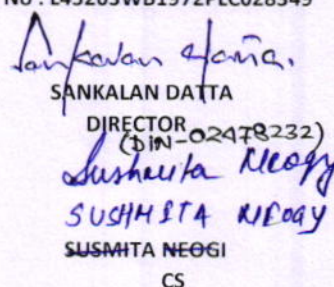 No : L45203WB1972PLC028349
Sankalan Datta.
SANKALAN DATTA
DIRECTOR
(DIN-02478232)
Sushmita Neogy
SUSHMITA NEOGY
SUSMITA NEOGI
CS